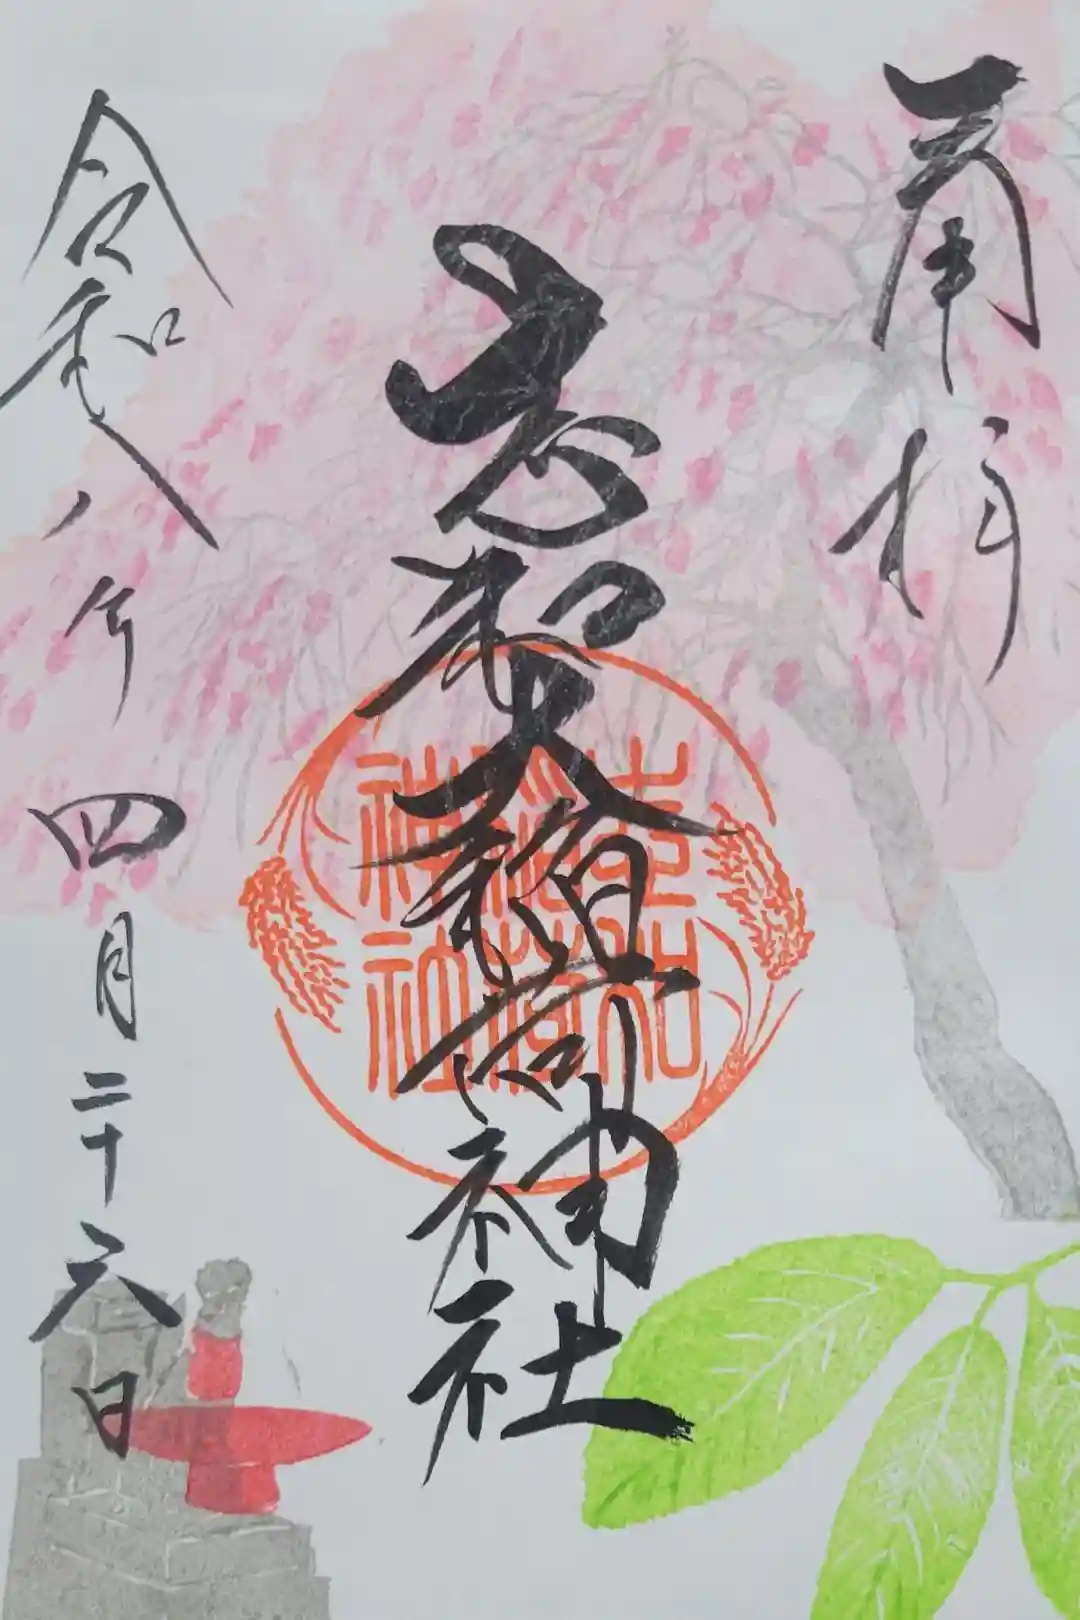 奉拝
志和大稲荷神社
志和
稲荷
神社
令和八年四月二十六日